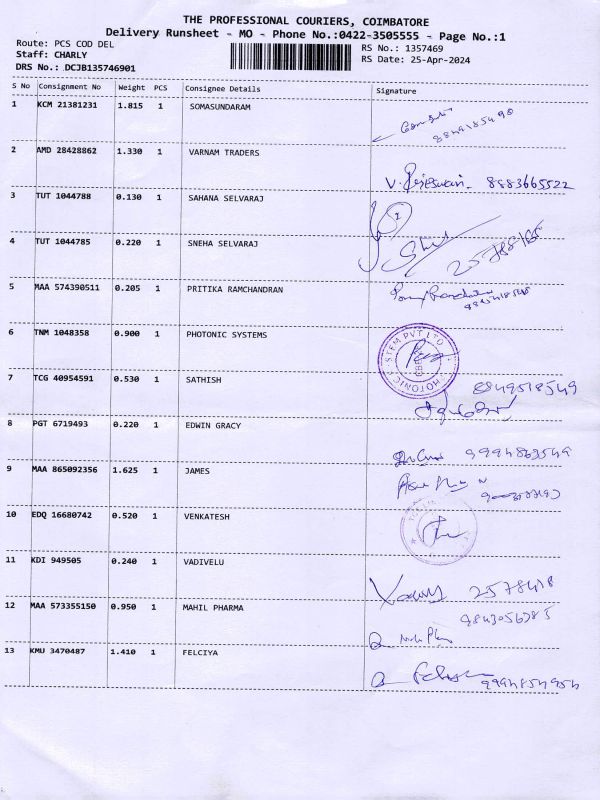 THE PROFESSIONAL COURIERS, COIMBATORE
Delivery Runsheet - MO - Phone No.:0422-3505555 - Page No.:1
Route: PCS COD DEL
Staff: CHARLY
DRS No.: DCJB135746901
RS No.: 1357469
RS Date: 25-Apr-2024
S No Consignment No Weight PCS Consignee Details Signature
1 KCM 21381231 1.815 1 SOMASUNDARAM
2 AMD 28428862 1.330 1 VARNAM TRADERS
V. 8883665522
3 TUT 1044788 0.130 1 SAHANA SELVARAJ
4 TUT 1044785 0.220 1 SNEHA SELVARAJ
5 MAA 574390511 0.205 1 PRITIKA RAMCHANDRAN
6 TNM 1048358 0.900 1 PHOTONIC SYSTEMS
7 TCG 40954591 0.530 1 SATHISH
8849518549
8 PGT 6719493 0.220 1 EDWIN GRACY
9994863549
9 MAA 865092356 1.625 1 JAMES
10 EDQ 16680742 0.520 1 VENKATESH
11 KDI 949505 0.240 1 VADIVELU
12 MAA 573355150 0.950 1 MAHIL PHARMA
13 KMU 3470487 1.410 1 FELCIYA